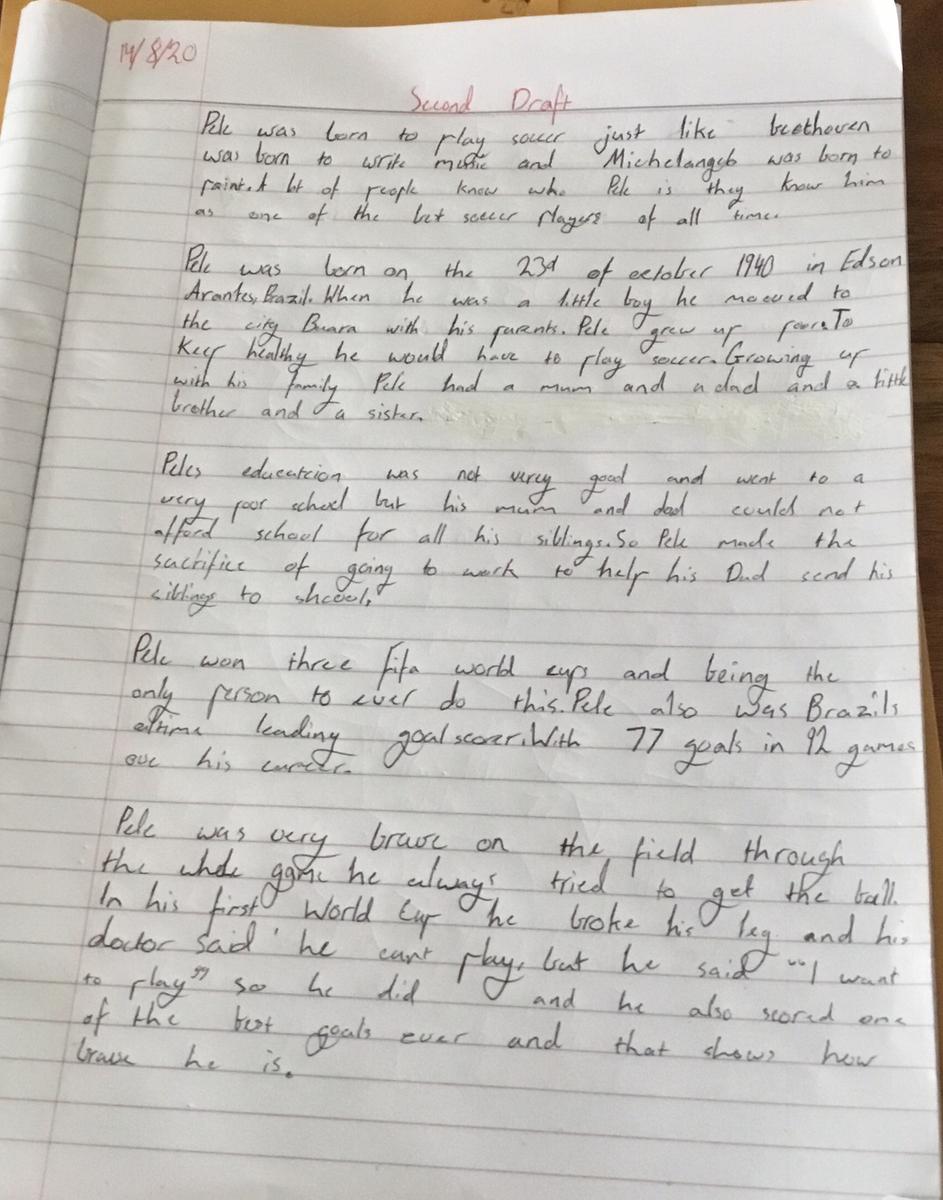 14/8/20
Second Draft
Pele was born to play soccer just like beethoven
was born to write music and Michelangelo was born to
paint. A lot of people know who Pele is they know him
as one of the bet soccer players of all time.
Pele was born on the 23d of october 1940 in Edson
Arantes, Brazil. When he was a little boy he mooved to
the city Buara with his parents. Pele grew up poor. To
Keep healthy he would have to play soccer. Growing up
with his family Pele had a mum and a dad and a little
brother and a sister.
Peles educateion was not verey good and went to a
very poor school but his mum and dad could not
afford school for all his siblings. So Pele made the
sacrifice of going to work to help his Dad send his
siblings to shcool.
Pele won three fifa world cups and being the
only person to ever do this. Pele also was Brazils
altime leading goalscorer. With 77 goals in 92 games
ove his career.
Pele was very brave on the field through
the whole game he always tried to get the ball.
In his first World Cup he broke his leg and his
doctor said ' he cant play, but he said "I want
to play" so he did and he also scored one
of the best goals ever and that shows how
brave he is.